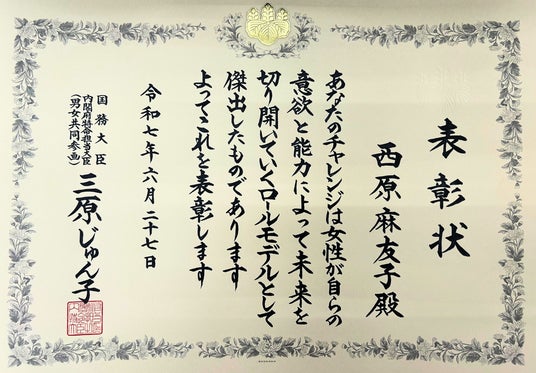 表彰状
西原麻友子殿
あなたのチャレンジは女性が自らの
意欲と能力によって未来を
切り開いていくロールモデルとして
傑出したものであります
よってこれを表彰します
令和七年六月二十七日
国務大臣
内閣府特命担当大臣
(男女共同参画)
三原じゅん子